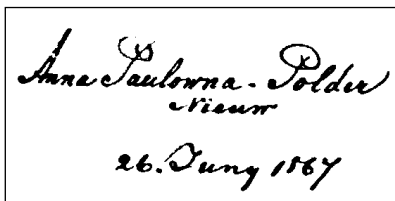 Anna Paulowna-Polder
Nieuw
26. Juny 1867